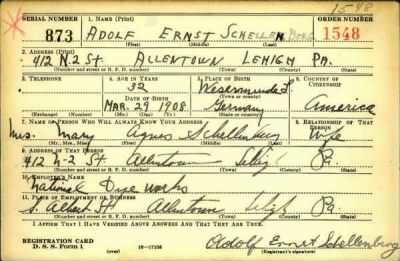 1548
SERIAL NUMBER 1. NAME (Print) ORDER NUMBER
873 ADOLF ERNST SCHELLENBERG 1548
(First) (Middle) (Last)
2. ADDRESS (Print)
412 N. 2 St. ALLENTOWN LEHIGH PA.
(Number and street or R. F. D. number) (Town) (County) (State)
3. TELEPHONE 4. AGE IN YEARS 5. PLACE OF BIRTH 6. COUNTRY OF CITIZENSHIP
32 Wesermunde L.
DATE OF BIRTH (Town or county)
MAR. 29 1908 Germany America
(Exchange) (No.) (Mo.) (Day) (Yr.) (State or country)
7. NAME OF PERSON WHO WILL ALWAYS KNOW YOUR ADDRESS 8. RELATIONSHIP OF THAT PERSON
Mrs. Mary Agnes Schellenberg Wife
(Mr., Mrs., Miss) (First) (Middle) (Last)
9. ADDRESS OF THAT PERSON
412 N-2 St Allentown Pa.
(Number and street or R. F. D. number) (Town) (County) (State)
10. EMPLOYER'S NAME
National Dye Works
11. PLACE OF EMPLOYMENT OR BUSINESS
S. Albert St Allentown Pa.
(Number and street or R. F. D. number) (Town) (County) (State)
I AFFIRM THAT I HAVE VERIFIED ABOVE ANSWERS AND THAT THEY ARE TRUE.
REGISTRATION CARD
D. S. S. FORM 1 16-17105 Adolf Ernst Schellenberg
(Registrant's signature)